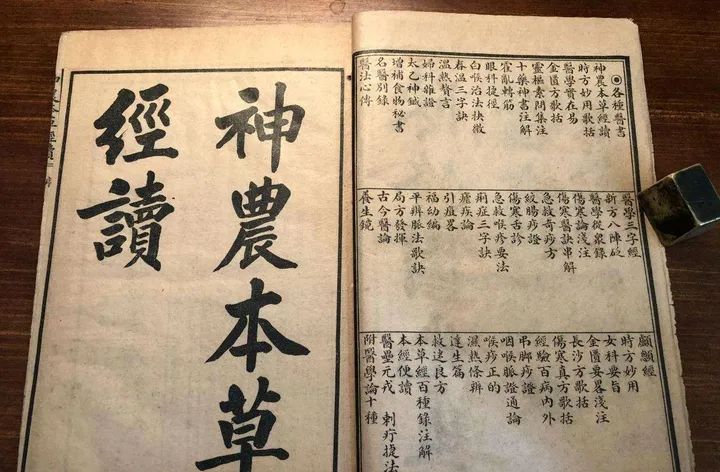 各種醫書
神農本草經讀
時方妙用歌括
醫學實在易
金匱方歌括
靈樞素問集注
十藥神書注解
霍亂轉筋
眼科捷徑
白喉治法抉微
春溫三字訣
溫熱贅言
婦科雜證
太乙神鍼
增補食物秘書
名醫別錄
醫法心傳
醫學三字經
新方八陣砭
醫學從眾錄
傷寒論淺注
傷寒醫訣串解
急救奇痧方
絞腸痧證
傷寒舌診
急救喉疹要法
痢症三字訣
瘧疾論
引痘畧
福幼編
平辨脈法歌訣
局方發揮
古今醫論
養生鏡
顱顖經
時方妙用
女科要旨
金匱要畧淺注
長沙方歌括
傷寒真方歌括
經驗百病內外
弔脚痧證
咽喉脈證通論
喉痧正的
濕熱條辨
達生篇
救迷良方
本草經百種錄注解
本經便讀
醫壘元戎 刺疔捷法
附醫學論十種
神農本草
經讀